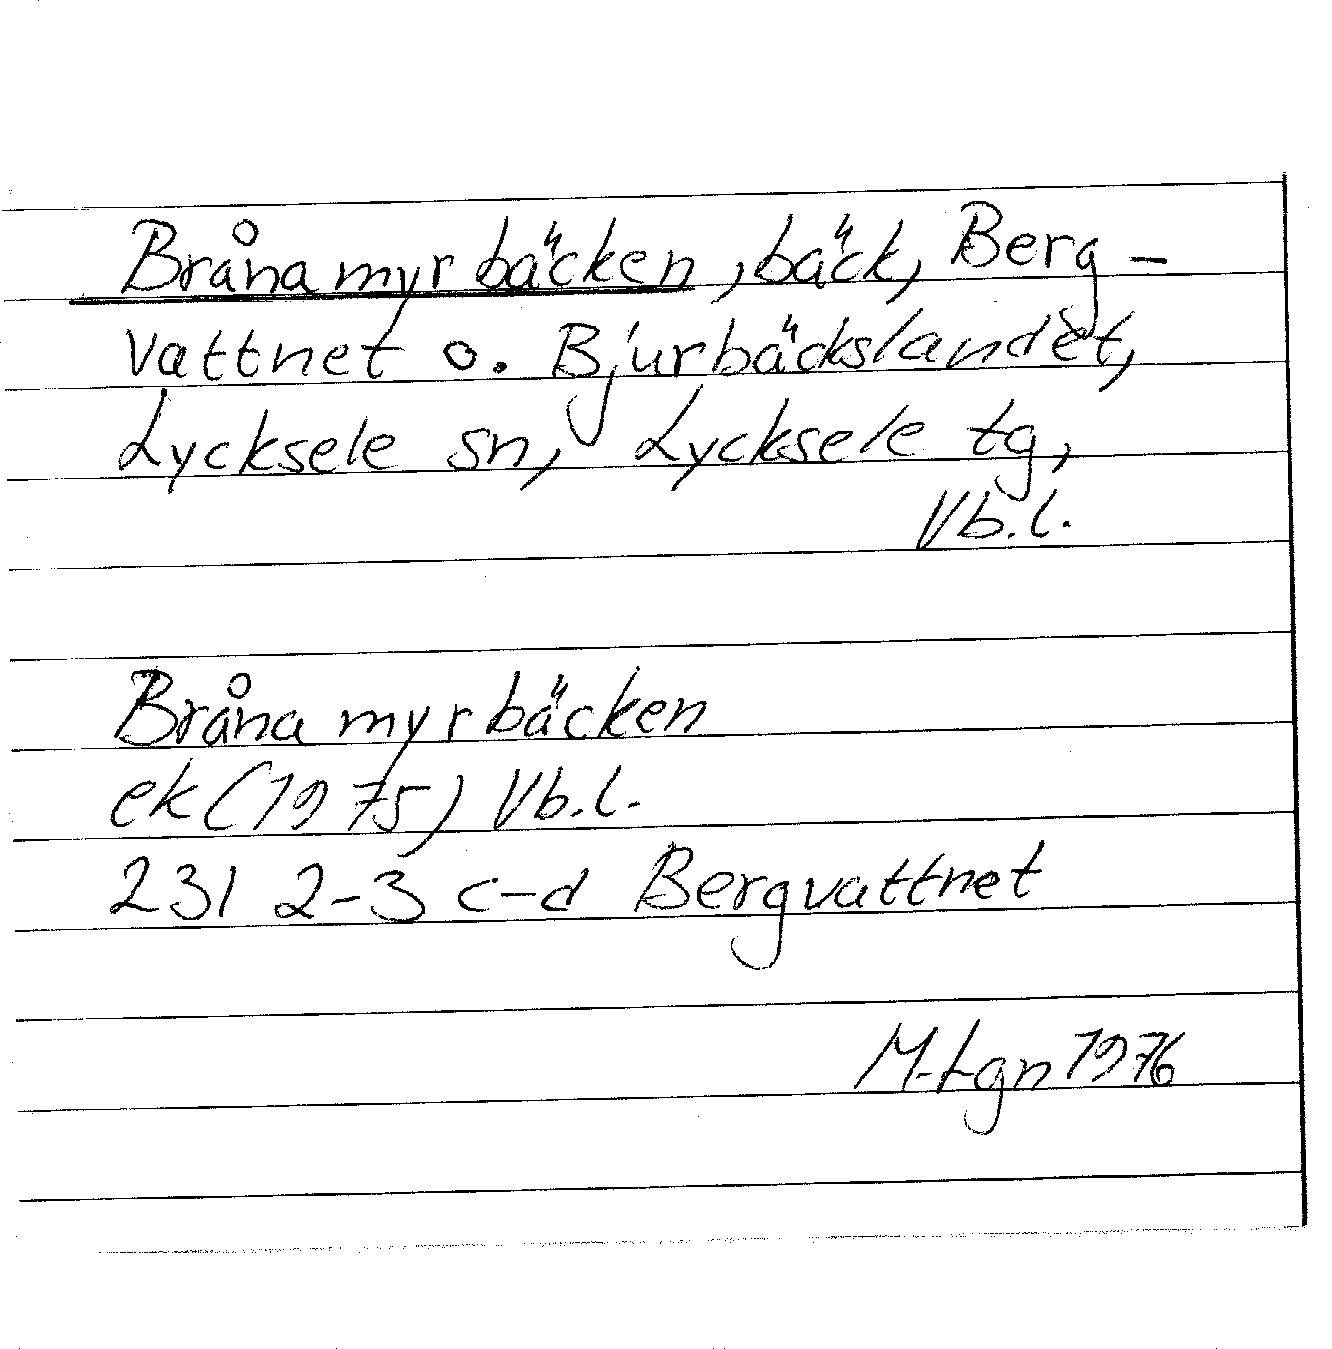 Brånamyrbäcken, bäck, Berg-
vattnet o. Bjurbäckslandet,
Lycksele sn, Lycksele tg,
Vb.l.
Brånamyrbäcken
ek (1975) Vb.l.
23I 2-3 c-d Bergvattnet
M.Lgn 1976